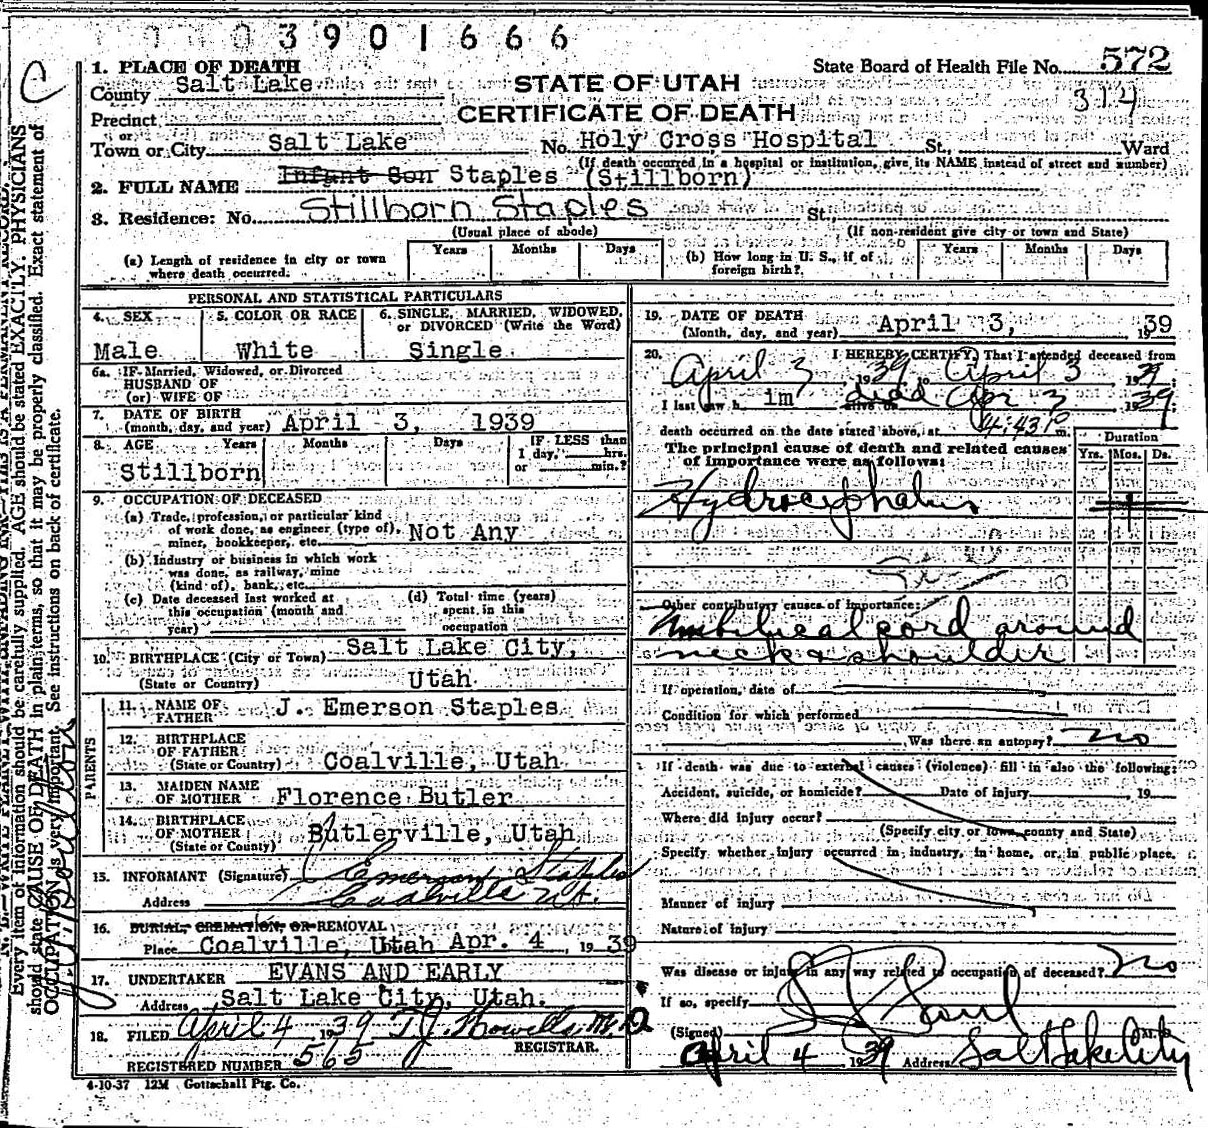 3901666
State Board of Health File No. 572
314
C
STATE OF UTAH
CERTIFICATE OF DEATH
1. PLACE OF DEATH
County Salt Lake
Precinct
or
Town or City Salt Lake No. Holy Cross Hospital St., Ward
(If death occurred in a hospital or institution, give its NAME instead of street and number)
2. FULL NAME Infant Son Staples (Stillborn)
3. Residence: No. Stillborn Staples St.
(Usual place of abode) (If non-resident give city or town and State)
(a) Length of residence in city or town where death occurred. Years Months Days
(b) How long in U. S., if of foreign birth? Years Months Days
PERSONAL AND STATISTICAL PARTICULARS
4. SEX Male
5. COLOR OR RACE White
6. SINGLE, MARRIED, WIDOWED, or DIVORCED (Write the Word) Single
6a. IF Married, Widowed, or Divorced
HUSBAND OF
(or) WIFE OF
7. DATE OF BIRTH
(month, day, and year) April 3, 1939
8. AGE Years Months Days IF LESS than
1 day, hrs.
or min.?
Stillborn
9. OCCUPATION OF DECEASED
(a) Trade, profession, or particular kind
of work done, as engineer (type of),
miner, bookkeeper, etc. Not Any
(b) Industry or business in which work
was done, as railway, mine
(kind of), bank, etc.
(c) Date deceased last worked at
this occupation (month and
year)
(d) Total time (years)
spent in this
occupation
10. BIRTHPLACE (City or Town) Salt Lake City,
(State or Country) Utah
PARENTS
11. NAME OF
FATHER J. Emerson Staples
12. BIRTHPLACE
OF FATHER
(State or Country) Coalville, Utah
13. MAIDEN NAME
OF MOTHER Florence Butler
14. BIRTHPLACE
OF MOTHER
(State or Country) Butlerville, Utah
15. INFORMANT (Signature) J Emerson Staples
Address Coalville Ut.
16. BURIAL, CREMATION, OR REMOVAL
Place Coalville, Utah Apr. 4, 1939
17. UNDERTAKER EVANS AND EARLY
Address Salt Lake City, Utah.
18. FILED April 4 1939 T.J. Howells M.D.
REGISTRAR.
REGISTERED NUMBER 565
4-10-37 12M Gottschall Ptg. Co.
19. DATE OF DEATH
(Month, day, and year) April 3, 1939
20. I HEREBY CERTIFY, That I attended deceased from
April 3 1939 to April 3 1939;
I last saw h im dead Apr 3 1939;
death occurred on the date stated above, at 4:43 P m.
The principal cause of death and related causes
of importance were as follows:
Duration
Yrs. Mos. Ds.
Hydrocephalus
Other contributory causes of importance:
Umbilical cord around
neck & shoulder
If operation, date of
Condition for which performed
Was there an autopsy? no
If death was due to external causes (violence) fill in also the following:
Accident, suicide, or homicide? Date of Injury 19
Where did injury occur?
(Specify city or town, county and State)
Specify whether injury occurred in industry, in home, or in public place.
Manner of injury
Nature of injury
Was disease or injury in any way related to occupation of deceased? No
If so, specify
(Signed) M. D.
April 4 1939 Address Salt Lake City
Every item of information should be carefully supplied. AGE should be stated EXACTLY. PHYSICIANS
should state CAUSE OF DEATH in plain terms, so that it may be properly classified. Exact statement of
OCCUPATION is very important. See instructions on back of certificate.